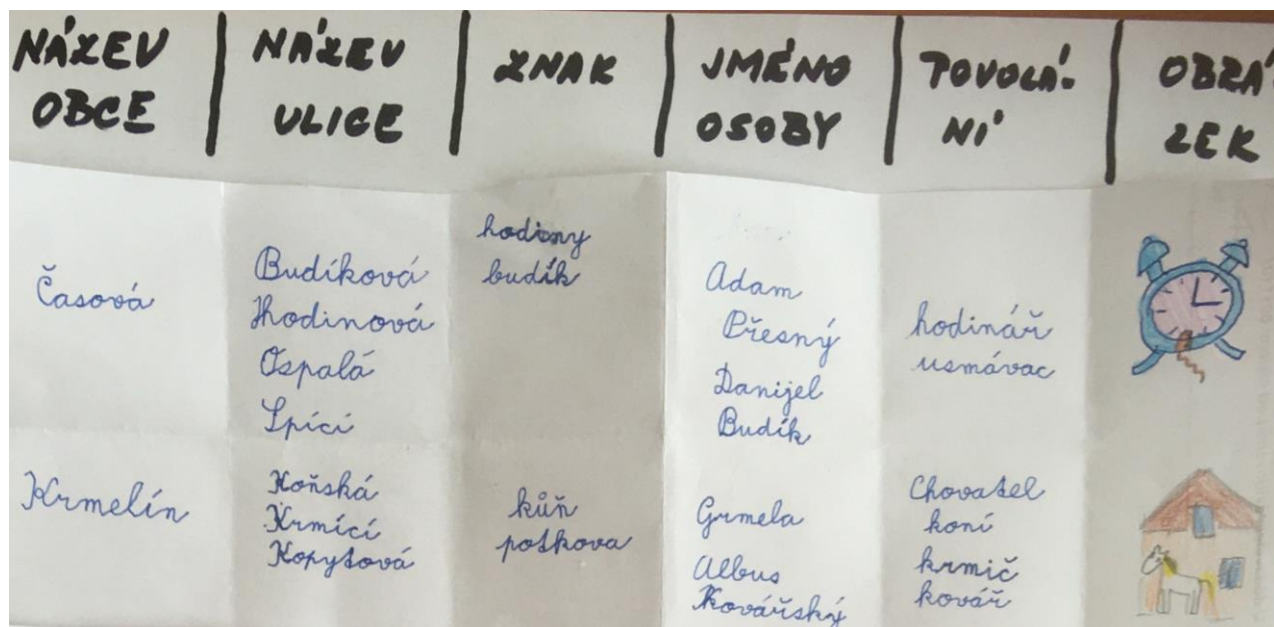 NÁZEV OBCE
NÁZEV ULICE
ZNAK
JMÉNO OSOBY
POVOLÁ-
NÍ
OBRÁ-
ZEK
Časová
Budíková
Hodinová
Ospalá
Spící
hodiny
budík
Adam
Přesný
Danijel
Budík
hodinář
usmávac
Krmelín
Koňská
Krmící
Kopytová
kůň
potkova
Grmela
Albus
Kovářský
Chovatel
koní
krmič
kovář